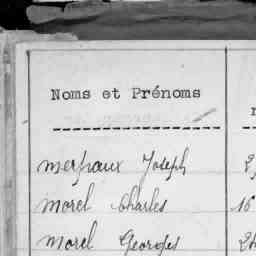 Noms et Prénoms
merpaux Joseph 2
morel Charles 16
morel Georges 2